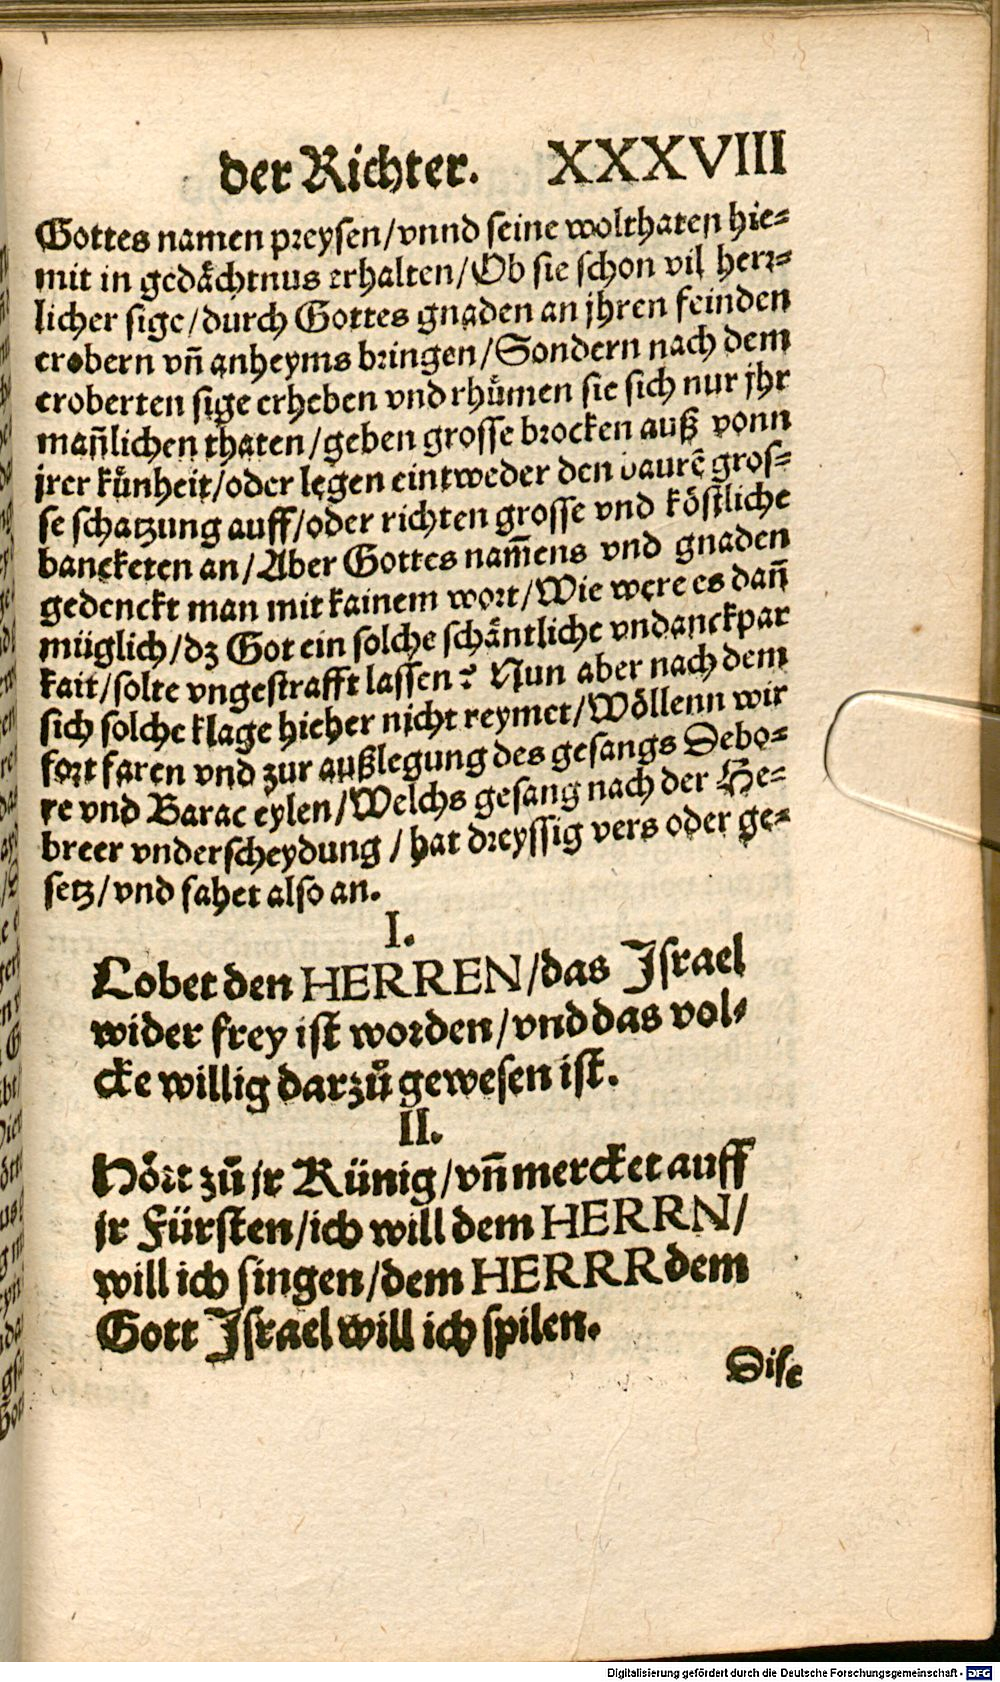 der Richter. XXXVIII
Gottes namen preysen/vnnd seine wolthaten hie⸗
mit in gedåchtnus erhalten/Ob sie schon vil herr⸗
licher sige/durch Gottes gnaden an jhren feinden
erobern vñ anheyms bringen/Sondern nach dem
eroberten sige erheben vnd rhůmen sie sich nur jhr
mañlichen thaten/geben grosse brocken auß vonn
jrer kůnheit/oder legen eintweder den baurẽ gros⸗
se schatzung auff/oder richten grosse vnd kőstliche
bancketen an/Aber Gottes nam̃ens vnd gnaden
gedenckt man mit kainem wort/Wie were es dañ
müglich/dz Got ein solche schåntliche vndanckpar
kait/solte vngestrafft lassen? Nun aber nach dem
sich solche klage hieher nicht reymet/Wöllenn wir
fort faren vnd zur außlegung des gesangs Debo⸗
re vnd Barac eylen/Welchs gesang nach der He⸗
breer vnderscheydung / hat dreyssig vers oder ge⸗
setz/vnd fahet also an.
I.
Lobet den HERREN/das Israel
wider frey ist worden/vnd das vol⸗
cke willig darzů gewesen ist.
II.
Hört zů jr Künig/vñ mercket auff
jr Fürsten/ich will dem HERRN/
will ich singen/dem HERRR dem
Gott Israel will ich spilen.
Dise
Digitalisierung gefördert durch die Deutsche Forschungsgemeinschaft - DFG